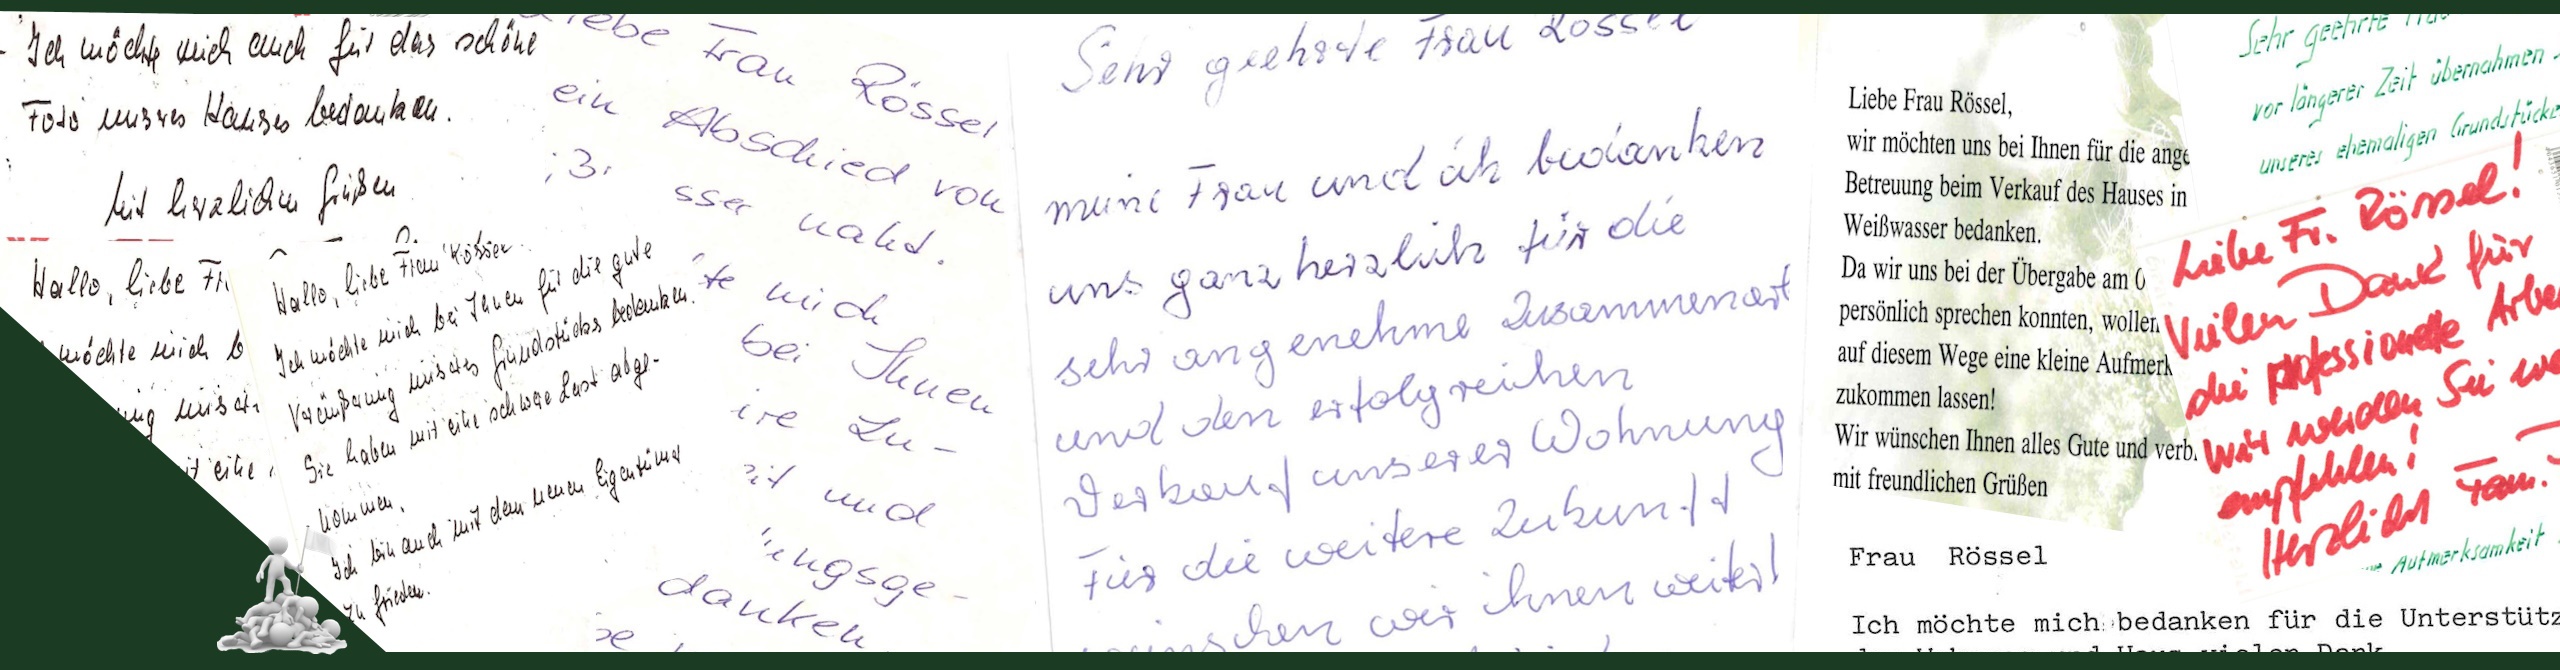 Ich möchte mich auch für das schöne
Foto unseres Hauses bedanken.
Mit herzlichen Grüßen
Hallo, liebe Fr
möchte mich b
ung unser
it eine
Hallo, liebe Frau Rössel
Ich möchte mich bei Ihnen für die gute
Veräußerung unseres Grundstücks bedanken.
Sie haben mir eine schwere Last abge-
nommen.
Ich bin auch mit dem neuen Eigentümer
zu frieden.
Liebe Frau Rössel
ein Abschied von
sser naht.
te mich
bei Ihnen
ire Zu-
it und
ungsge-
danken
Sehr geehrte Frau Rössel
meine Frau und ich bedanken
uns ganz herzlich für die
sehr angenehme Zusammenarbeit
und den erfolgreichen
Verkauf unserer Wohnung
Für die weitere Zukunft
wünschen wir ihnen weiterhin
Liebe Frau Rössel,
wir möchten uns bei Ihnen für die ange
Betreuung beim Verkauf des Hauses in
Weißwasser bedanken.
Da wir uns bei der Übergabe am 0
persönlich sprechen konnten, wollen
auf diesem Wege eine kleine Aufmerk
zukommen lassen!
Wir wünschen Ihnen alles Gute und verb.
mit freundlichen Grüßen
Frau Rössel
Ich möchte mich bedanken für die Unterstütz
Sehr geehrte Frau
vor längerer Zeit übernahmen
unseres ehemaligen Grundstücke
Liebe Fr. Rössel!
Vielen Dank für
die professionelle Arbei
Wir werden Sie we
empfehlen!
Herzlichst Fam.
Aufmerksamkeit